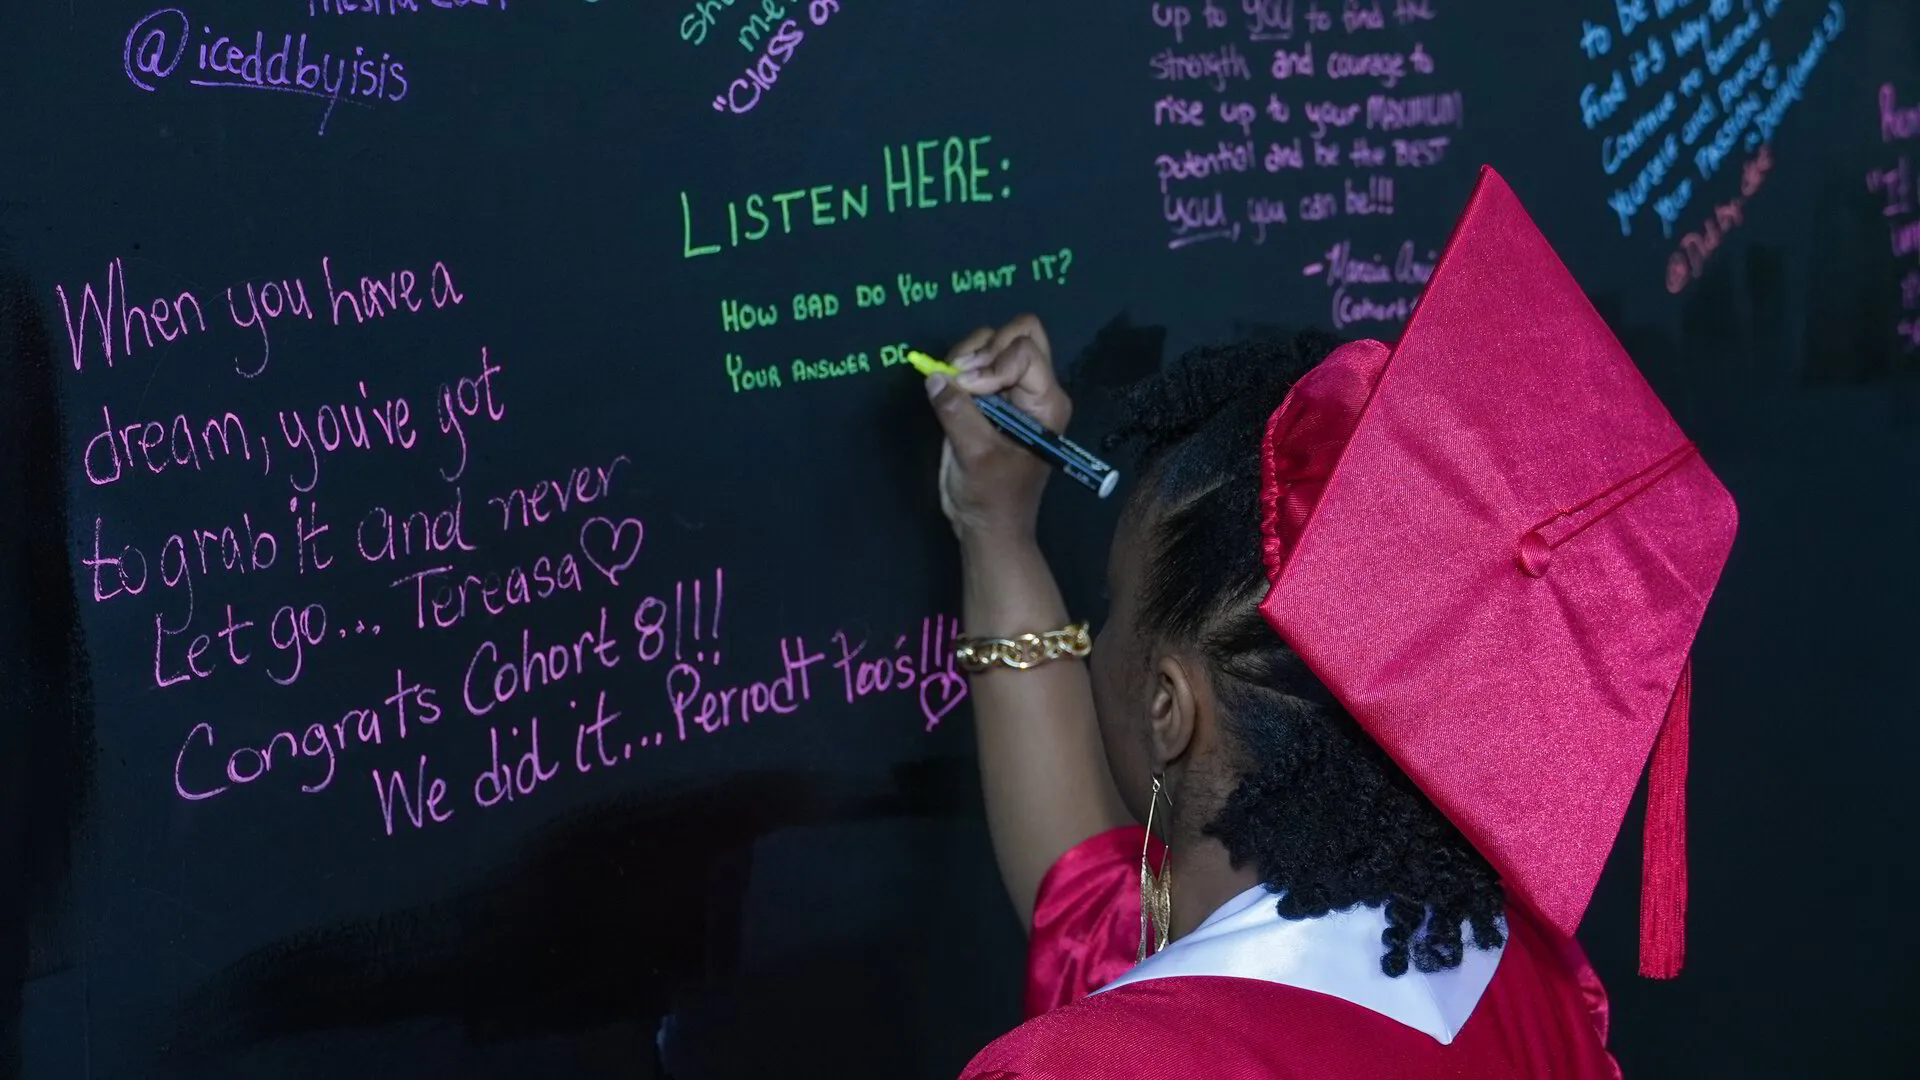 @iceddbyisis
"Class of
LISTEN HERE:
HOW BAD DO YOU WANT IT?
YOUR ANSWER DO
When you have a
dream, you've got
to grab it and never
Let go... Tereasa
Congrats Cohort 8!!!
We did it... Periodt Too's!!!
up to YOU to find the
strength and courage to
rise up to your MAXIMUM
potential and be the BEST
YOU, you can be!!!
- Marcia
(Cohort
to be
find it's way to
Continue to believe
yourself and pursue
your PASSION